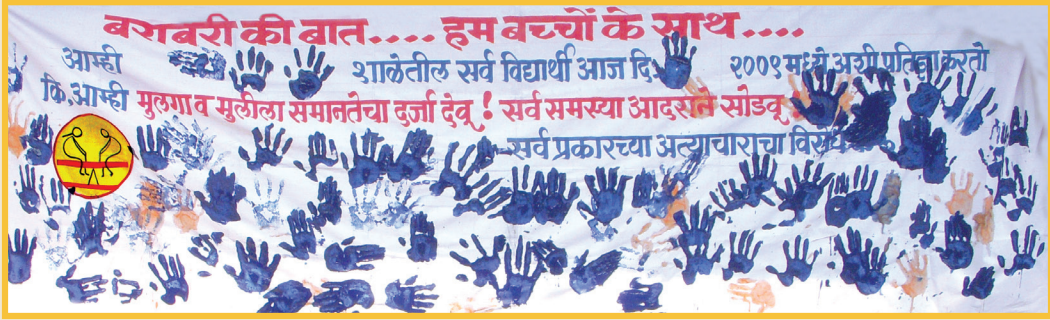 बराबरी की बात.... हम बच्चों के साथ....
आम्ही शाळेतील सर्व विद्यार्थी आज दि. २००९ मध्ये अशी प्रतिज्ञा करतो
कि, आम्ही मुलगा व मुलीला समानतेचा दर्जा देवू ! सर्व समस्या आदराने सोडवू
सर्व प्रकारच्या अत्याचाराचा